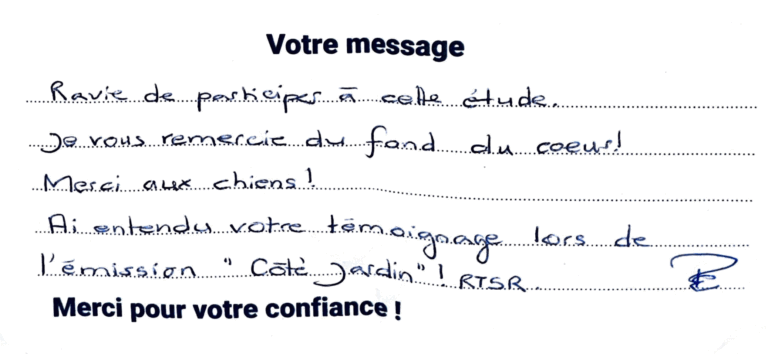 Votre message
Ravie de participer à cette étude.
Je vous remercie du fond du coeur!
Merci aux chiens!
Ai entendu votre témoignage lors de
l'émission "Côté Jardin"! RTSR.
Merci pour votre confiance !